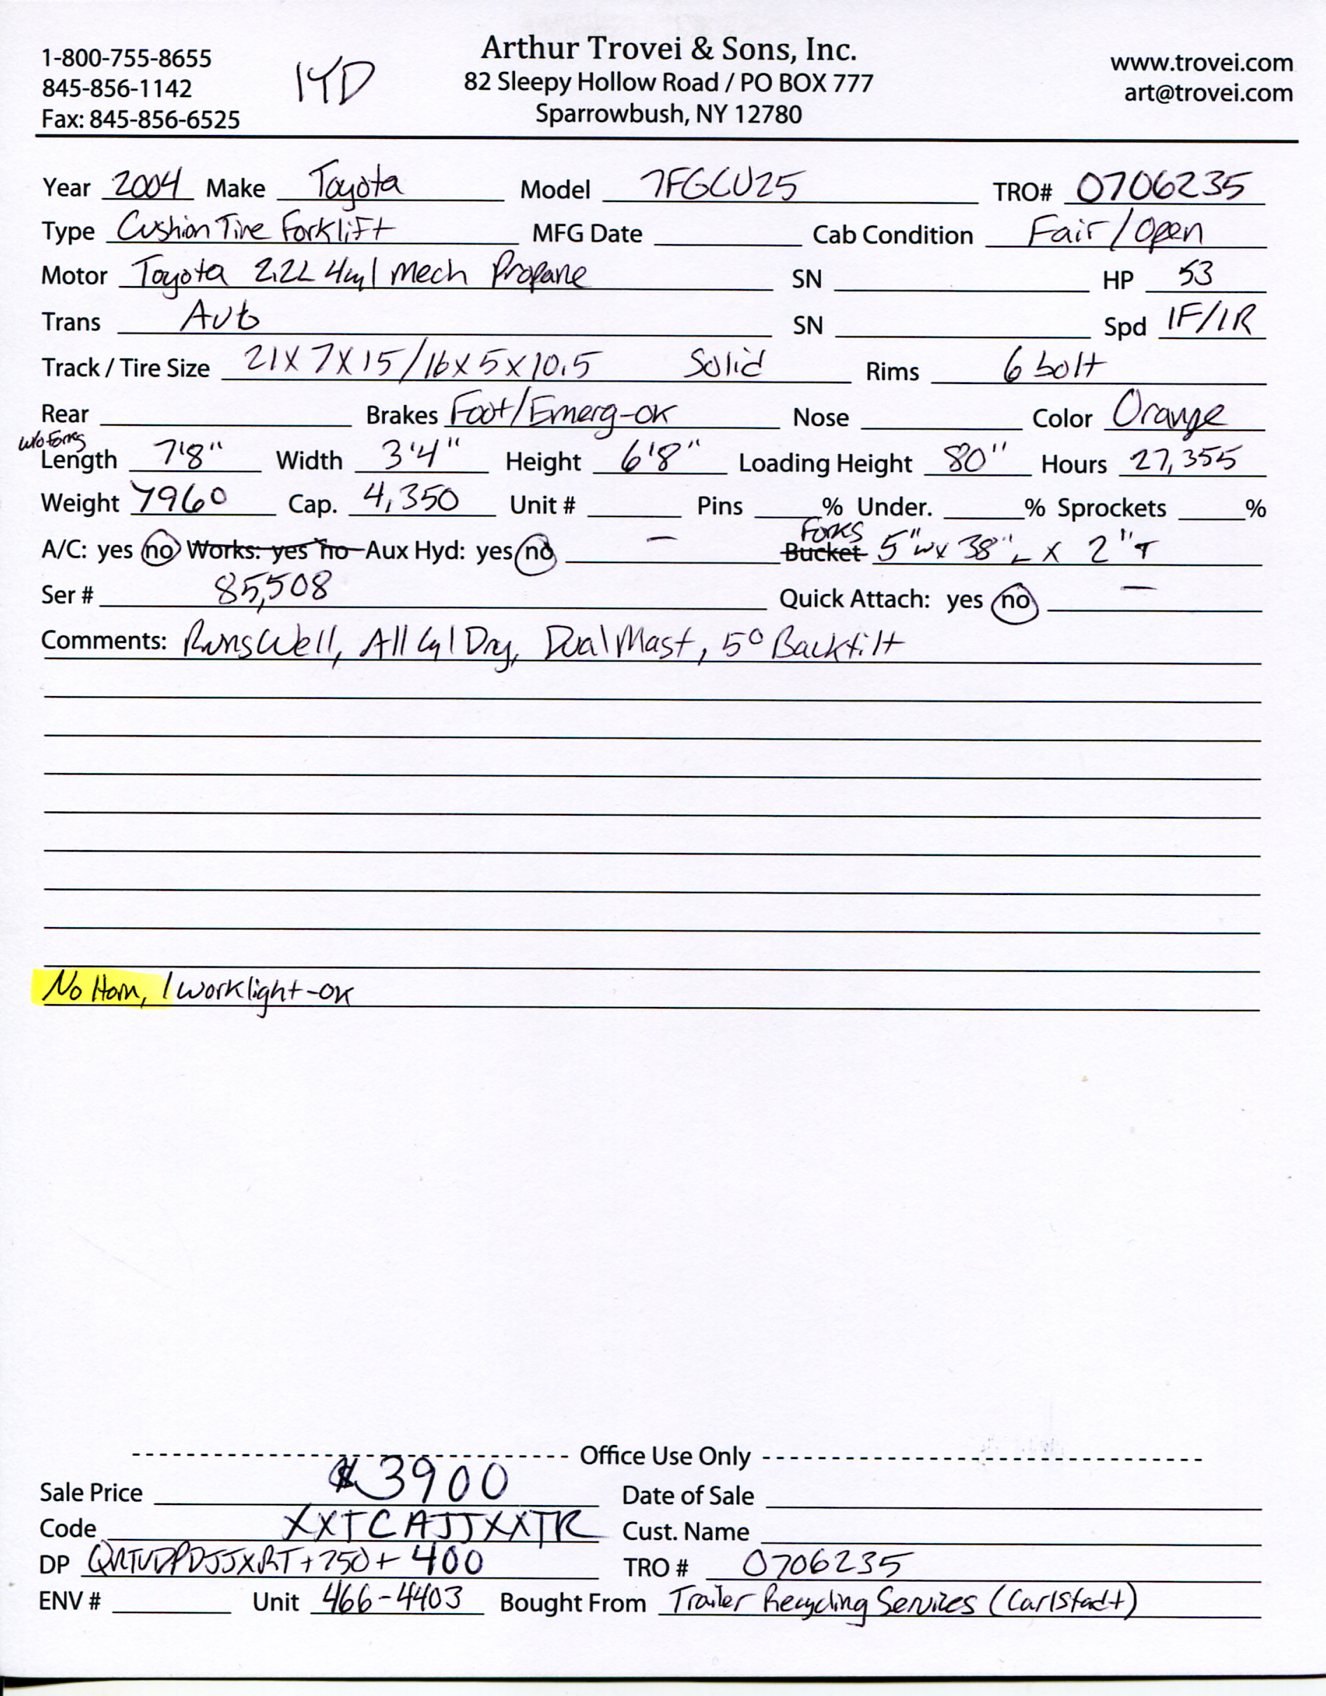 Arthur Trovei & Sons, Inc.
82 Sleepy Hollow Road / PO BOX 777
Sparrowbush, NY 12780
1-800-755-8655
845-856-1142
Fax: 845-856-6525
1YD
www.trovei.com
art@trovei.com
Year 2004 Make Toyota Model 7FGCU25 TRO# 0706235
Type Cushion Tire Forklift MFG Date Cab Condition Fair/Open
Motor Toyota 2.2L 4cyl Mech Propane SN HP 53
Trans Auto SN Spd 1F/1R
Track / Tire Size 21x7x15/16x5x10.5 Solid Rims 6 bolt
Rear Brakes Foot/Emerg-ok Nose Color Orange
w/o Forks
Length 7'8" Width 3'4" Height 6'8" Loading Height 80" Hours 27,355
Weight 7960 Cap. 4,350 Unit # Pins % Under. % Sprockets %
Forks
A/C: yes no Works: yes no Aux Hyd: yes no — Bucket 5"W x 38"L x 2"T
Ser # 85,508 Quick Attach: yes no —
Comments: Runs Well, All Cyl Dry, Dual Mast, 5° Backtilt
No Horn, 1 worklight-ok
Office Use Only
Sale Price $3900 Date of Sale
Code XXTCAJJXXTR Cust. Name
DP +750+400 TRO # 0706235
ENV # Unit 466-4403 Bought From Trailer Recycling Services (Carlstadt)